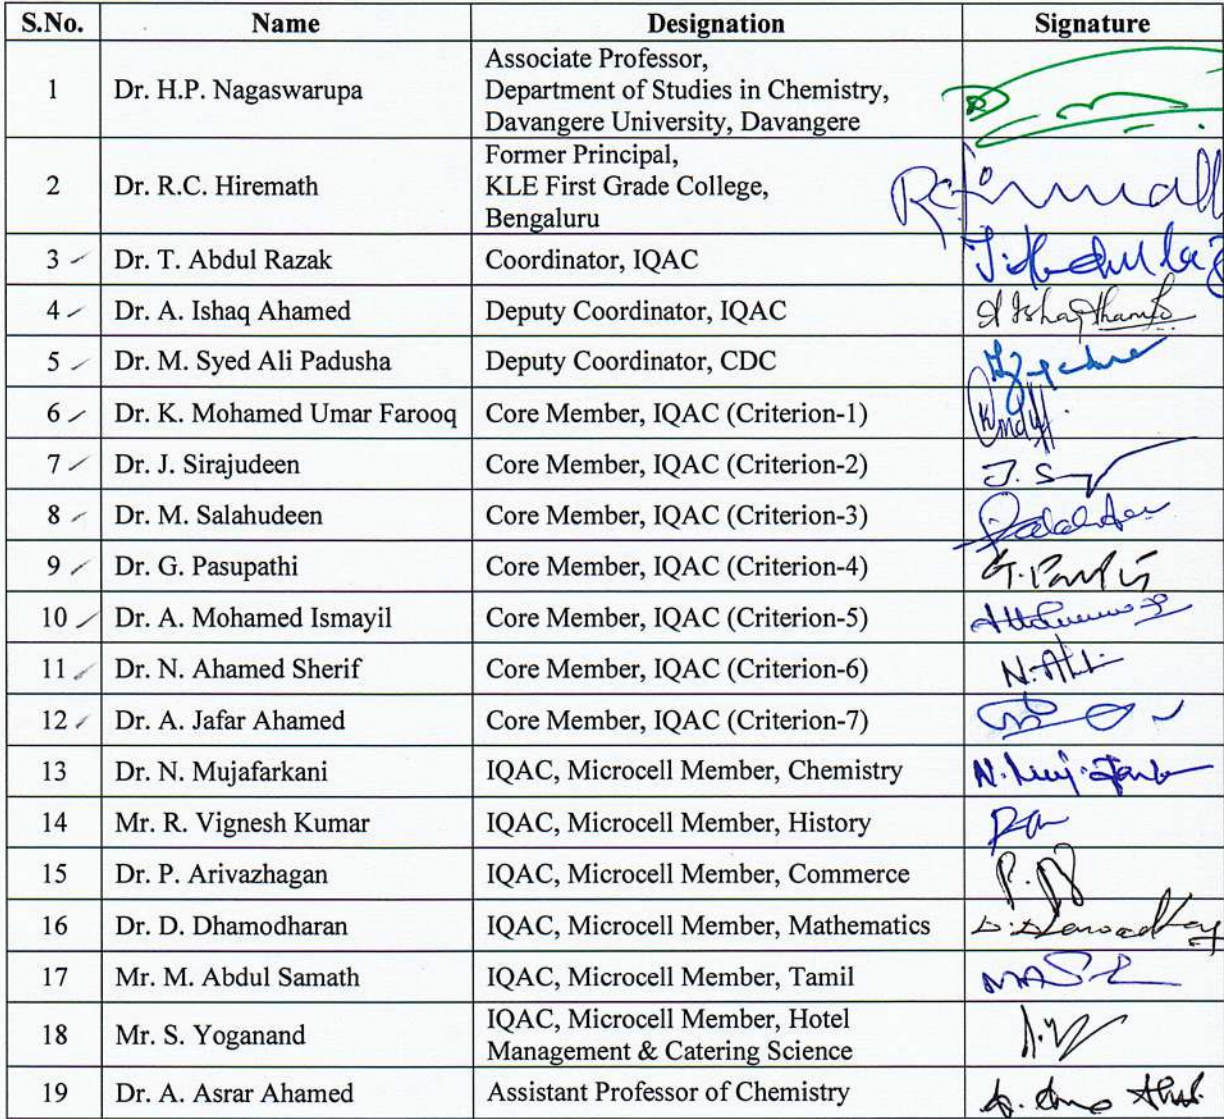 S.No. Name Designation Signature
1 Dr. H.P. Nagaswarupa Associate Professor,
Department of Studies in Chemistry,
Davangere University, Davangere
2 Dr. R.C. Hiremath Former Principal,
KLE First Grade College,
Bengaluru
3 Dr. T. Abdul Razak Coordinator, IQAC
4 Dr. A. Ishaq Ahamed Deputy Coordinator, IQAC
5 Dr. M. Syed Ali Padusha Deputy Coordinator, CDC
6 Dr. K. Mohamed Umar Farooq Core Member, IQAC (Criterion-1)
7 Dr. J. Sirajudeen Core Member, IQAC (Criterion-2)
8 Dr. M. Salahudeen Core Member, IQAC (Criterion-3)
9 Dr. G. Pasupathi Core Member, IQAC (Criterion-4)
10 Dr. A. Mohamed Ismayil Core Member, IQAC (Criterion-5)
11 Dr. N. Ahamed Sherif Core Member, IQAC (Criterion-6)
12 Dr. A. Jafar Ahamed Core Member, IQAC (Criterion-7)
13 Dr. N. Mujafarkani IQAC, Microcell Member, Chemistry
14 Mr. R. Vignesh Kumar IQAC, Microcell Member, History
15 Dr. P. Arivazhagan IQAC, Microcell Member, Commerce
16 Dr. D. Dhamodharan IQAC, Microcell Member, Mathematics
17 Mr. M. Abdul Samath IQAC, Microcell Member, Tamil
18 Mr. S. Yoganand IQAC, Microcell Member, Hotel
Management & Catering Science
19 Dr. A. Asrar Ahamed Assistant Professor of Chemistry